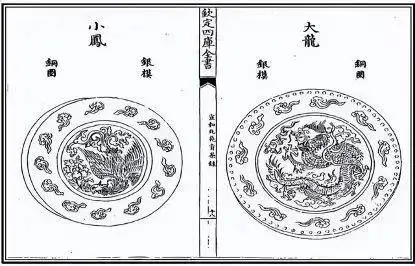 大龍
銅圈
銀模
欽定四庫全書
宣和北苑貢茶錄
小鳳
銀模
銅圈